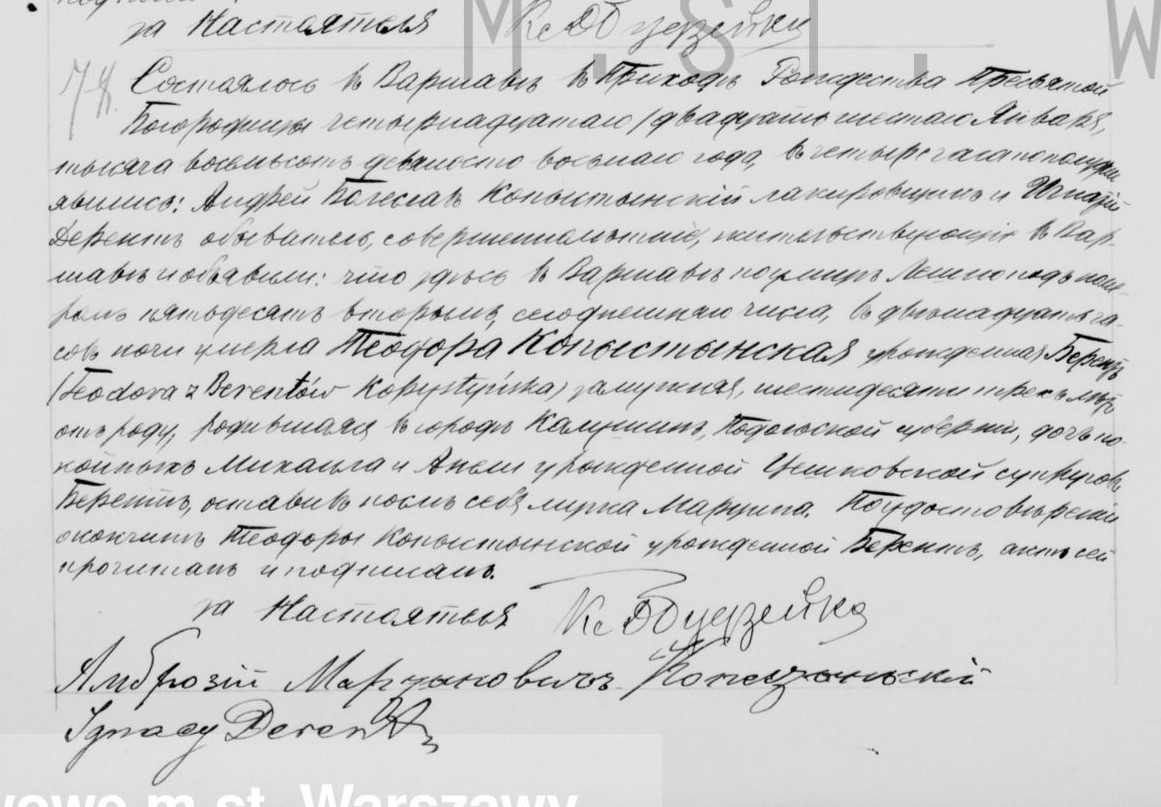 за Настоятеля Кс Д Будзейко
M. S T. W
78.
Состоялось въ Варшавѣ въ Приходѣ Рождества Пресвятой
Богородицы четырнадцатаго /двадцать шестаго Января,
тысяча восемьсотъ девяносто восьмаго года, въ четыре часа пополудни
явились: Андрей Болеславъ Копыстынскій лакировщикъ и Игнатій
Берентъ обыватель, совершеннолѣтніе, жительствующіе въ Вар-
шавѣ и объявили: что здѣсь въ Варшавѣ по улицѣ Лешно подъ номе-
ромъ пятьдесятъ вторымъ, сегодняшняго числа, въ двѣнадцать ча-
совъ ночи умерла Теодора Копыстынская урожденная Берентъ
(Teodora z Berentów Kopystyńska) замужняя, шестидесяти трехъ лѣтъ
отъ роду, родившаяся въ городѣ Калушинѣ, губерніи, дочь по-
койныхъ Михаила и Анели урожденной Цешковской супруговъ
Берентъ, оставивъ послѣ себя мужа Марцина. По удостовѣреніи
о кончинѣ Теодоры Копыстынской урожденной Берентъ, актъ сей
прочитанъ и подписанъ.
за Настоятеля Кс Д Будзейко
Амброзій Марцыновичъ
Ignacy Berent
m.st. Warszawy